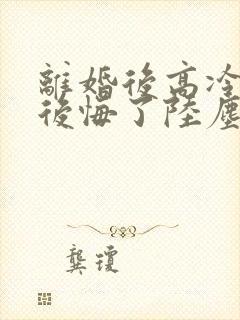 離婚後高冷
後悔了陸塵
龔瓊